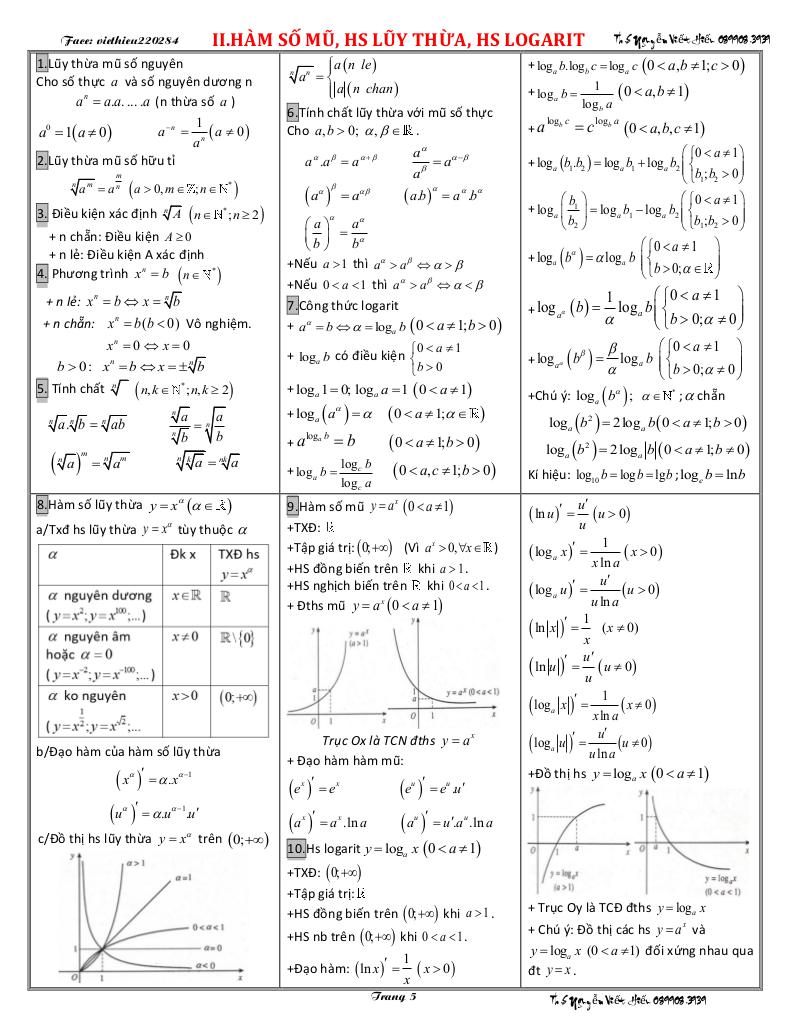 Face: viethieu220284
II.HÀM SỐ MŨ, HS LŨY THỪA, HS LOGARIT
Th.S Nguyễn Viết Hiếu 089908.3939
1.Lũy thừa mũ số nguyên
Cho số thực a và số nguyên dương n
aⁿ = a.a. ... .a (n thừa số a)
a⁰ = 1(a ≠ 0)    a⁻ⁿ = 1/aⁿ (a ≠ 0)
2.Lũy thừa mũ số hữu tỉ
ⁿ√(a^m) = a^(m/n) (a > 0, m ∈ ℤ; n ∈ ℕ*)
3. Điều kiện xác định ⁿ√A (n ∈ ℕ*; n ≥ 2)
+ n chẵn: Điều kiện A ≥ 0
+ n lẻ: Điều kiện A xác định
4. Phương trình xⁿ = b (n ∈ ℕ*)
+ n lẻ: xⁿ = b ⇔ x = ⁿ√b
+ n chẵn: xⁿ = b(b < 0) Vô nghiệm.
xⁿ = 0 ⇔ x = 0
b > 0: xⁿ = b ⇔ x = ±ⁿ√b
5. Tính chất ⁿ√ (n, k ∈ ℕ*; n, k ≥ 2)
ⁿ√a.ⁿ√b = ⁿ√(ab)    ⁿ√a/ⁿ√b = ⁿ√(a/b)
(ⁿ√a)^m = ⁿ√(a^m)    ⁿ√(ᵏ√a) = ⁿᵏ√a
ⁿ√(aⁿ) = { a (n le)
|a| (n chan)
6.Tính chất lũy thừa với mũ số thực
Cho a, b > 0; α, β ∈ ℝ.
a^α.a^β = a^(α+β)    a^α/a^β = a^(α−β)
(a^α)^β = a^(αβ)    (a.b)^α = a^α.b^α
(a/b)^α = a^α/b^α
+Nếu a > 1 thì a^α > a^β ⇔ α > β
+Nếu 0 < a < 1 thì a^α > a^β ⇔ α < β
7.Công thức logarit
+ a^α = b ⇔ α = log_a b (0 < a ≠ 1; b > 0)
+ log_a b có điều kiện { 0 < a ≠ 1
b > 0
+ log_a 1 = 0; log_a a = 1 (0 < a ≠ 1)
+ log_a (a^α) = α (0 < a ≠ 1; α ∈ ℝ)
+ a^(log_a b) = b (0 < a ≠ 1; b > 0)
+ log_a b = log_c b/log_c a (0 < a, c ≠ 1; b > 0)
+ log_a b.log_b c = log_a c (0 < a, b ≠ 1; c > 0)
+ log_a b = 1/log_b a (0 < a, b ≠ 1)
+ a^(log_b c) = c^(log_b a) (0 < a, b, c ≠ 1)
+ log_a (b₁.b₂) = log_a b₁ + log_a b₂ ({ 0 < a ≠ 1
b₁; b₂ > 0)
+ log_a (b₁/b₂) = log_a b₁ − log_a b₂ ({ 0 < a ≠ 1
b₁; b₂ > 0)
+ log_a (b^α) = α log_a b ({ 0 < a ≠ 1
b > 0; α ∈ ℝ)
+ log_(a^α) (b) = 1/α log_a b ({ 0 < a ≠ 1
b > 0; α ≠ 0)
+ log_(a^α) (b^β) = β/α log_a b ({ 0 < a ≠ 1
b > 0; α ≠ 0)
+Chú ý: log_a (b^α); α ∈ ℕ*; α chẵn
log_a (b²) = 2 log_a b (0 < a ≠ 1; b > 0)
log_a (b²) = 2 log_a |b| (0 < a ≠ 1; b ≠ 0)
Kí hiệu: log₁₀ b = log b = lg b; log_e b = ln b
8.Hàm số lũy thừa y = x^α (α ∈ ℝ)
a/Txđ hs lũy thừa y = x^α tùy thuộc α
α    Đk x    TXĐ hs
y = x^α
α nguyên dương    x ∈ ℝ    ℝ
(y = x²; y = x¹⁰⁰;...)
α nguyên âm    x ≠ 0    ℝ\{0}
hoặc α = 0
(y = x⁻²; y = x⁻¹⁰⁰;...)
α ko nguyên    x > 0    (0; +∞)
(y = x^(1/2); y = x^√2;...
b/Đạo hàm của hàm số lũy thừa
(x^α)′ = α.x^(α−1)
(u^α)′ = α.u^(α−1).u′
c/Đồ thị hs lũy thừa y = x^α trên (0; +∞)
y
α > 1
α = 1
0 < α < 1
1
α = 0
α < 0
O 1 x
9.Hàm số mũ y = a^x (0 < a ≠ 1)
+TXĐ: ℝ
+Tập giá trị: (0; +∞) (Vì a^x > 0, ∀x ∈ ℝ)
+HS đồng biến trên ℝ khi a > 1.
+HS nghịch biến trên ℝ khi 0 < a < 1.
+ Đths mũ y = a^x (0 < a ≠ 1)
y    y = a^x
(a > 1)
a
1
O 1 x
y
y = a^x (0 < a < 1)
1
a
O 1 x
Trục Ox là TCN đths y = a^x
+ Đạo hàm hàm mũ:
(e^x)′ = e^x    (e^u)′ = e^u.u′
(a^x)′ = a^x.ln a    (a^u)′ = u′.a^u.ln a
10.Hs logarit y = log_a x (0 < a ≠ 1)
+TXĐ: (0; +∞)
+Tập giá trị: ℝ
+HS đồng biến trên (0; +∞) khi a > 1.
+HS nb trên (0; +∞) khi 0 < a < 1.
+Đạo hàm: (ln x)′ = 1/x (x > 0)
(ln u)′ = u′/u (u > 0)
(log_a x)′ = 1/(x ln a) (x > 0)
(log_a u)′ = u′/(u ln a) (u > 0)
(ln|x|)′ = 1/x (x ≠ 0)
(ln|u|)′ = u′/u (u ≠ 0)
(log_a |x|)′ = 1/(x ln a) (x ≠ 0)
(log_a |u|)′ = u′/(u ln a) (u ≠ 0)
+Đồ thị hs y = log_a x (0 < a ≠ 1)
y
1
O 1 a x
y = log_a x
(a > 1)
y
1
O a 1 x
y = log_a x
(0 < a < 1)
+ Trục Oy là TCĐ đths y = log_a x
+ Chú ý: Đồ thị các hs y = a^x và
y = log_a x (0 < a ≠ 1) đối xứng nhau qua
đt y = x.
Trang 5
Th.S Nguyễn Viết Hiếu 089908.3939